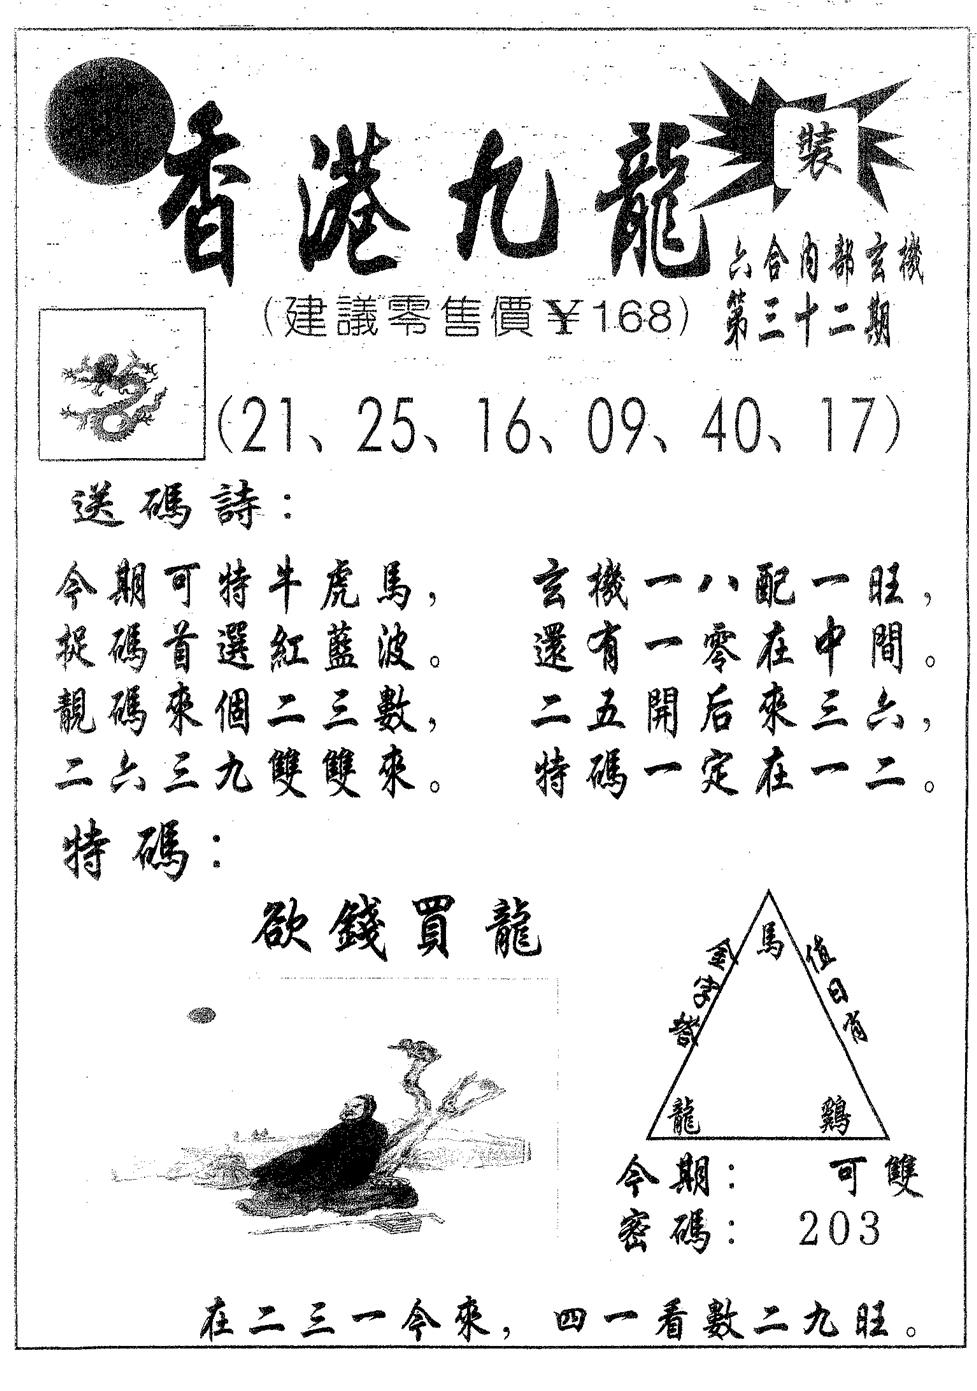 香港九龍
裝
六合内部玄機
第三十二期
(建議零售價¥168)
(21、25、16、09、40、17)
送碼詩：
今期可特牛虎馬，
捉碼首選紅藍波。
靚碼來個二三數，
二六三九雙雙來。
玄機一八配一旺，
還有一零在中間。
二五開后來三六，
特碼一定在一二。
特碼：
欲錢買龍
金字
值日肖
馬
龍
鷄
今期：可雙
密碼：203
在二三一今來，四一看數二九旺。